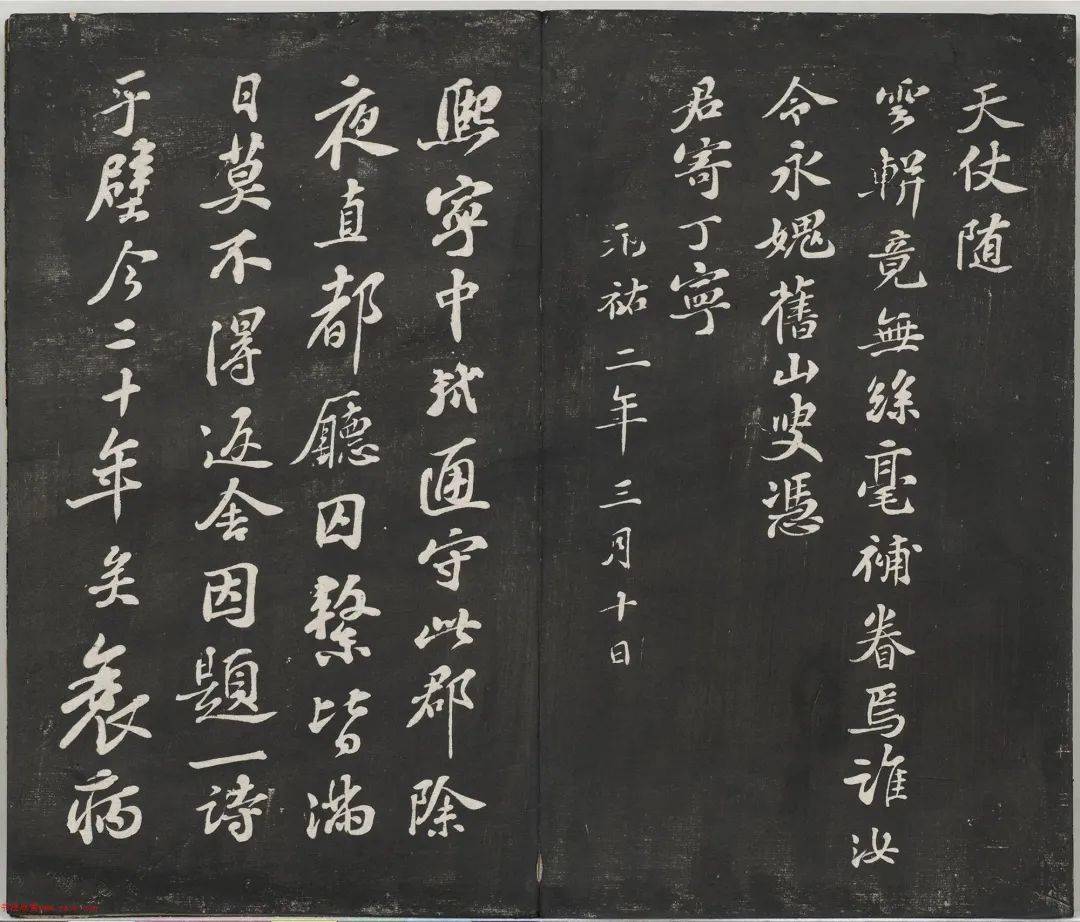 天仗随
雲輧竟無絲毫補眷焉誰汝
令永媿舊山叟憑
君寄丁寧
元祐二年三月十日
熙寧中軾通守此郡除
夜直都廳囚繫皆滿
日莫不得返舍因題一詩
于壁今二十年矣衰病